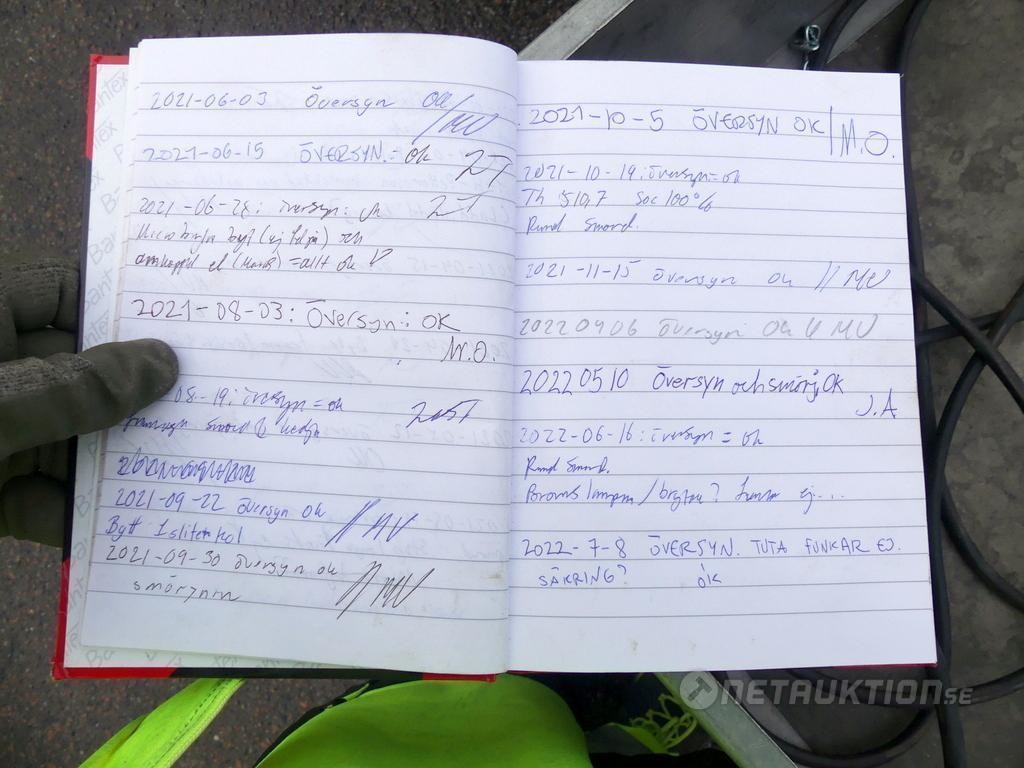 2021-06-03 Översyn OK //MV
2021-06-15 ÖVERSYN. = OK
2021-06-28: översyn: ok
byt (ej följa) och
omkopplat el = allt ok
2021-08-03: Översyn: OK
M.O.
08-19: översyn = ok
smord
2021-09-22 översyn ok //MV
Bytt 1 slitenkol
2021-09-30 översyn ok //MV
smörjnin
2021-10-5 ÖVERSYN OK/M.O.
2021-10-19: översyn = ok
Th 510,7 Soc 100%
Rund Smord.
2021-11-15 översyn ok // MV
20220406 översyn ok // MV
20220510 Översyn och smörj. Ok
J.A
2022-06-16: översyn = ok
Rund Smord.
Broms lampa/brytare? funkar ej...
2022-7-8 ÖVERSYN. TUTA FUNKAR EJ.
SÄKRING? OK
NETAUKTION.SE
Bantex